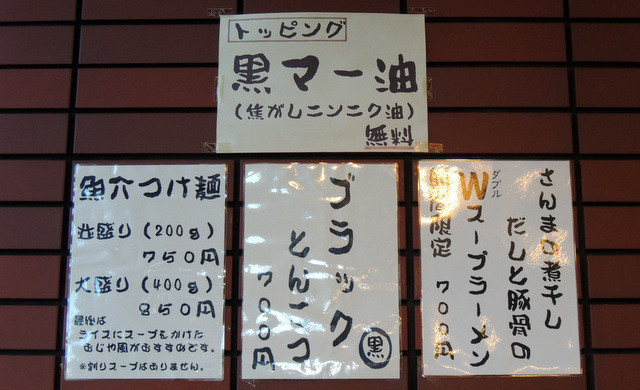 トッピング
黒マー油
(焦がしニンニク油)
無料
魚介つけ麺
並盛り(200g)
750円
大盛り(400g)
850円
最後は
ライスにスープをかけた
おじや風がおすすめです。
※割りスープはありません。
ブラック
とんこつ
700円
黒
さんまの煮干し
だしと豚骨の
ダブル
Wスープラーメン
限定 700円